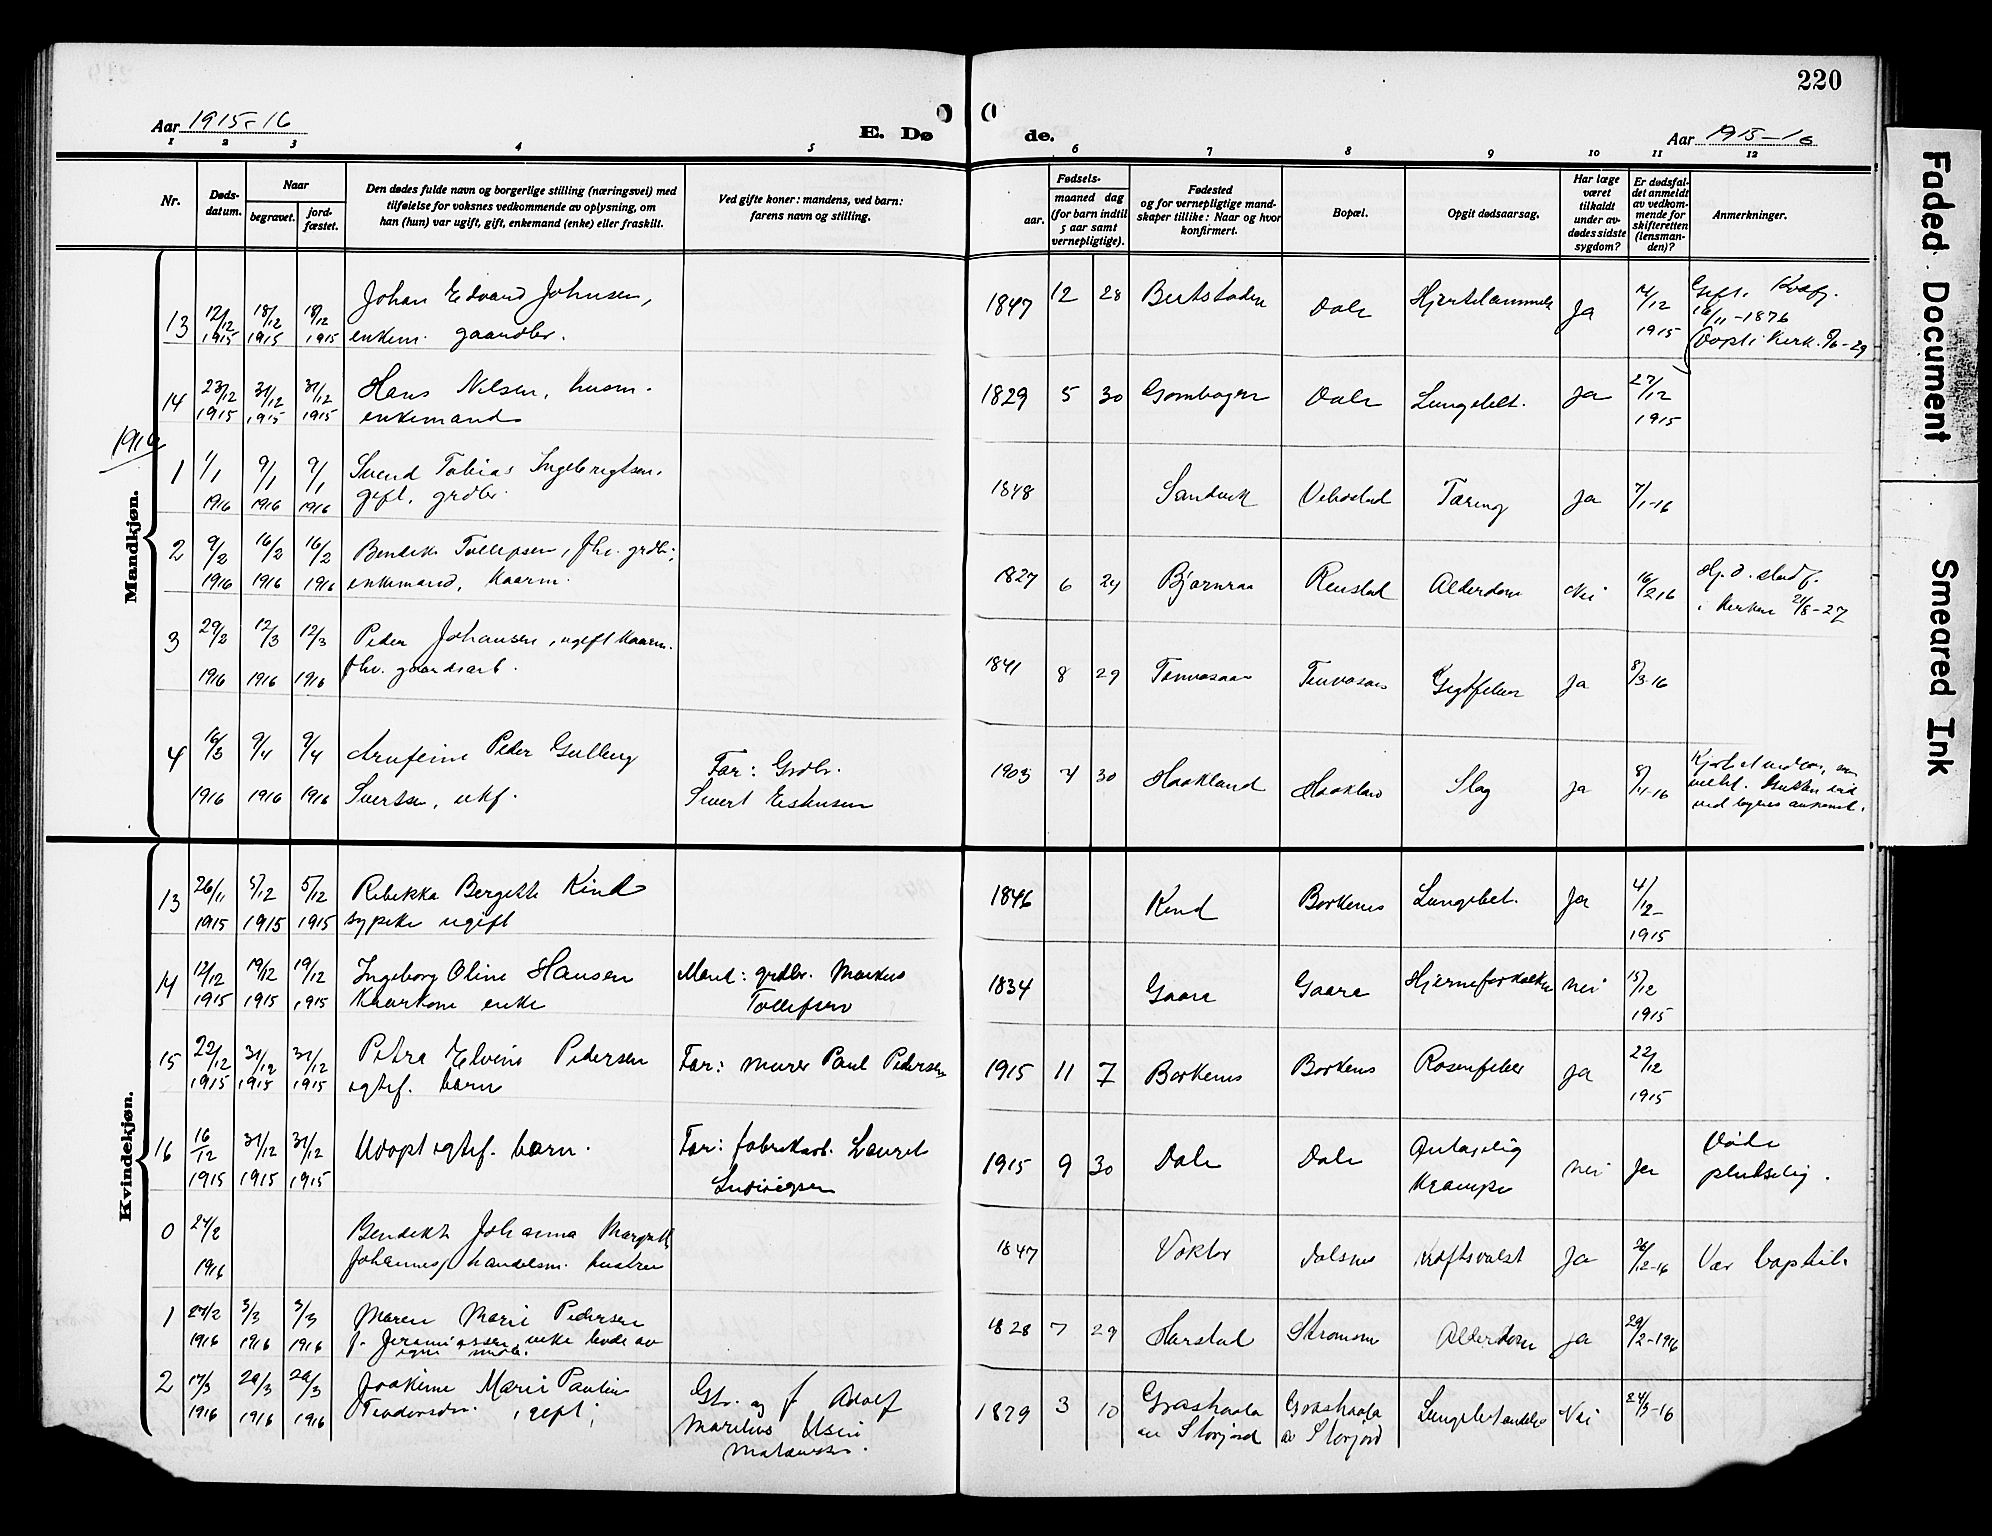 220
Aar 1915-16
E. Dø
de.
Aar 1915-16
1 2 3 4 5 6 7 8 9 10 11 12
Nr.
Døds-
datum.
Naar
begravet.
jord-
fæstet.
Den dødes fulde navn og borgerlige stilling (næringsvei) med
tilføielse for voksnes vedkommende av oplysning, om
han (hun) var ugift, gift, enkemand (enke) eller fraskilt.
Ved gifte koner: mandens, ved barn:
farens navn og stilling.
Fødsels-
aar.
maaned dag
(for barn indtil
5 aar samt
vernepligtige).
Fødested
og for vernepligtige mand-
skaper tillike: Naar og hvor
konfirmert.
Bopæl.
Opgit dødsaarsag.
Har læge
været
tilkaldt
under av-
dødes sidste
sygdom?
Er dødsfal-
det anmeldt
av vedkom-
mende for
skifteretten
(lensman-
den)?
Anmerkninger.
Mandkjøn.
13 12/12 1915 18/12 1915 18/12 1915 Johan Edvard Johnsen,
enkem. gaardbr.
1847 12 28 Dale Ja 14/12 1915
16/11-1876
14 23/12 1915 31/12 1915 31/12 1915 Hans Nilsen, husm.
enkemand
1829 5 30 Dale Lungebet. Ja 27/12 1915
1916
1 1/1 1916 9/1 1916 9/1 1916 Svend Tobias Ingebrigtsen,
gift, grdbr.
1848 Sandvik Tæring Ja 7/1-16
2 9/2 1916 16/2 1916 16/2 1916 Bendik Tollefsen, fhv. grdbr.,
enkemand, kaarm.
1827 6 24 Bjørnraa Renstad Alderdom Nei 16/2 16
i kirken 21/8-27
3 29/2 1916 12/3 1916 12/3 1916 Peder Johansen, ugift kaarm.
fhv. gaardsarb.
1841 8 29 Gigtfeber Ja 8/3-16
4 16/3 1916 9/4 1916 9/4 1916 Arnfinn Peder Gulberg
Sivertsen, ukf.
Far: Grdbr.
Sivert
1903 7 30 Haakland Haakland Slag Ja 8/4-16
Kvindekjøn.
13 26/11 1915 5/12 1915 5/12 1915 Rebekka Bergitte Kind
sypike ugift
1846 Kind Borkenes Lungebet. Ja 4/12-1915
14 12/12 1915 19/12 1915 19/12 1915 Ingeborg Oline Hansen
Kaarkone enke
Mand: grdbr. Markus
Tollefsen
1834 Gaara Gaara Hjerneforkalkn nei 15/12 1915
15 22/12 1915 31/12 1915 31/12 1915 Petra Elvine Pedersen
egtef. barn
Far: murer Paul Pedersen
1915 11 7 Borkenes Borkenes Rosenfeber Ja 22/12 1915
16 16/12 1915 31/12 1915 31/12 1915 Udøpt egtef. barn.
Far: fabrikarb. Laurit
Ludvigsen
1915 9 30 Dale Dale Antagelig
Krampe
nei Ja Døde
plutselig.
0 24/2 1916 Bendikte Johanna Margrethe
Johannes, handelsm. hustru
1847 Dalsnes Kræftsvulst Ja 26/2-16 Var baptist.
1 27/2 1916 3/3 1916 3/3 1916 Maren Marie Pedersen
f. Jeremiassen, enke levde av
egne midl.
1828 7 29 Harstad Alderdom Ja 29/2-1916
2 17/3 1916 29/3 1916 29/3 1916 Joakime Marie Pauline
Teodorsdtr. gift;
Adolf
Marelius
1879 3 10 Grashaala
av Storjord
Grashaala
av Storjord
Nei 24/3-16
Faded Document
Smeared Ink